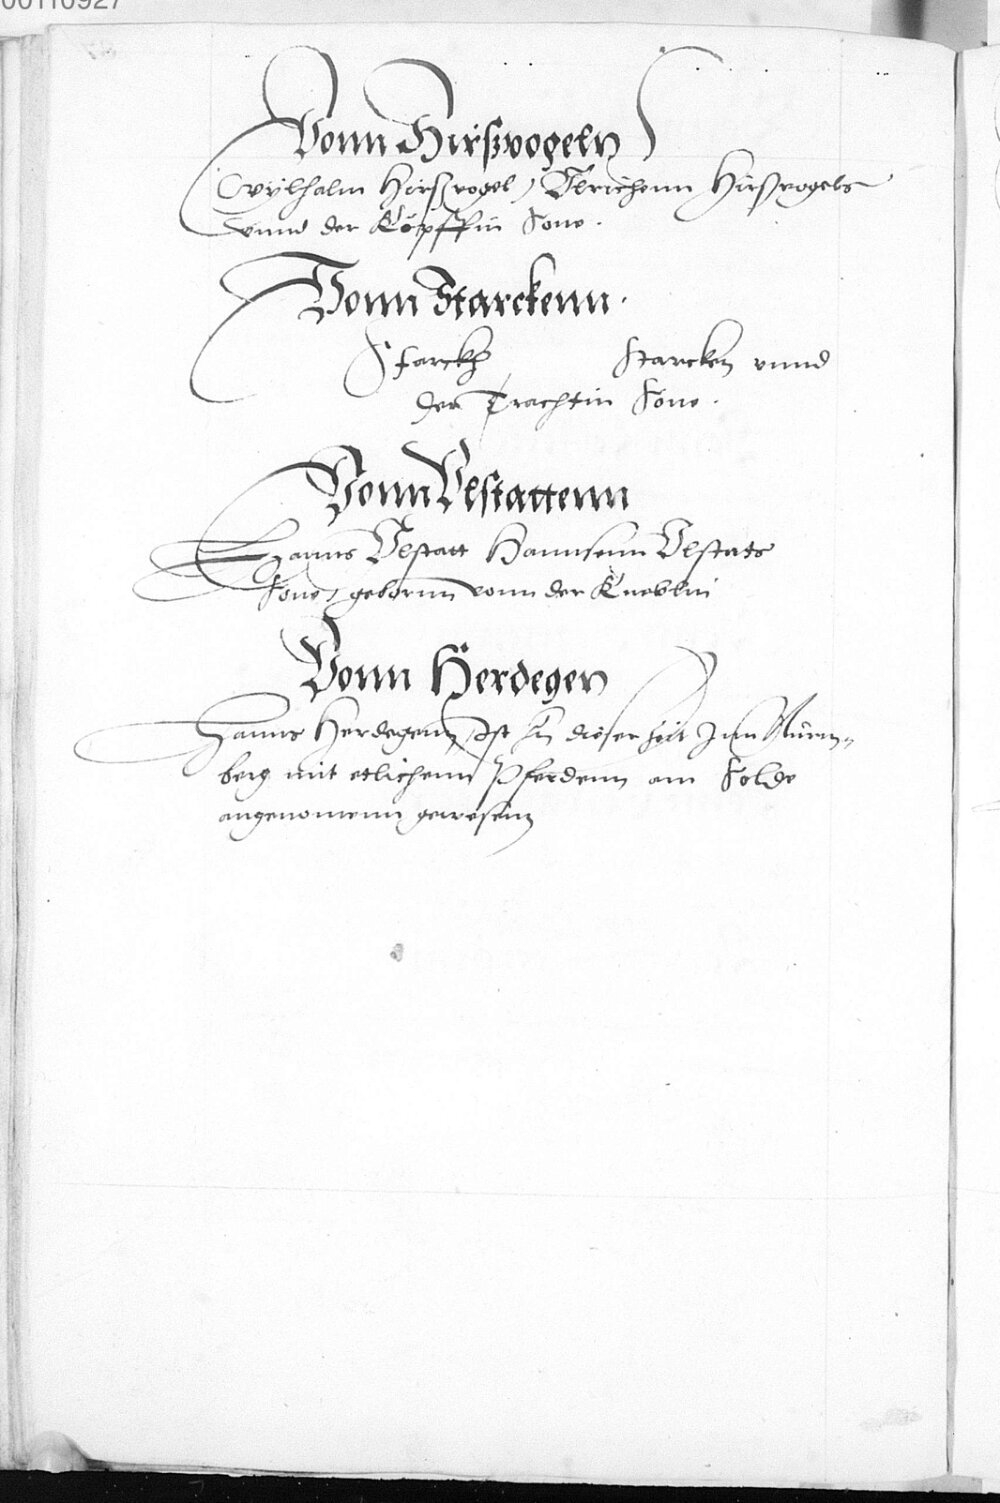 00110927
Vonn Hirßvogeln
Wylhalm Hirßvogel, Ulrichenn Hirßvogels
vnnd der Köpffin Sone.
Vonn Starckenn.
Starckh Starcken vnnd
der Trachtin Sone.
Vonn Vlstattenn
Hanns Vlstatt Hannsenn Vlstats
Sone, geborn vonn der Kneblin
Vonn Herdegen
Hanns Herdegenn, Ist In dieser Zeit Inn Nürm-
berg mit etlichenn Pferdenn am Solde
angenomenn gewesenn